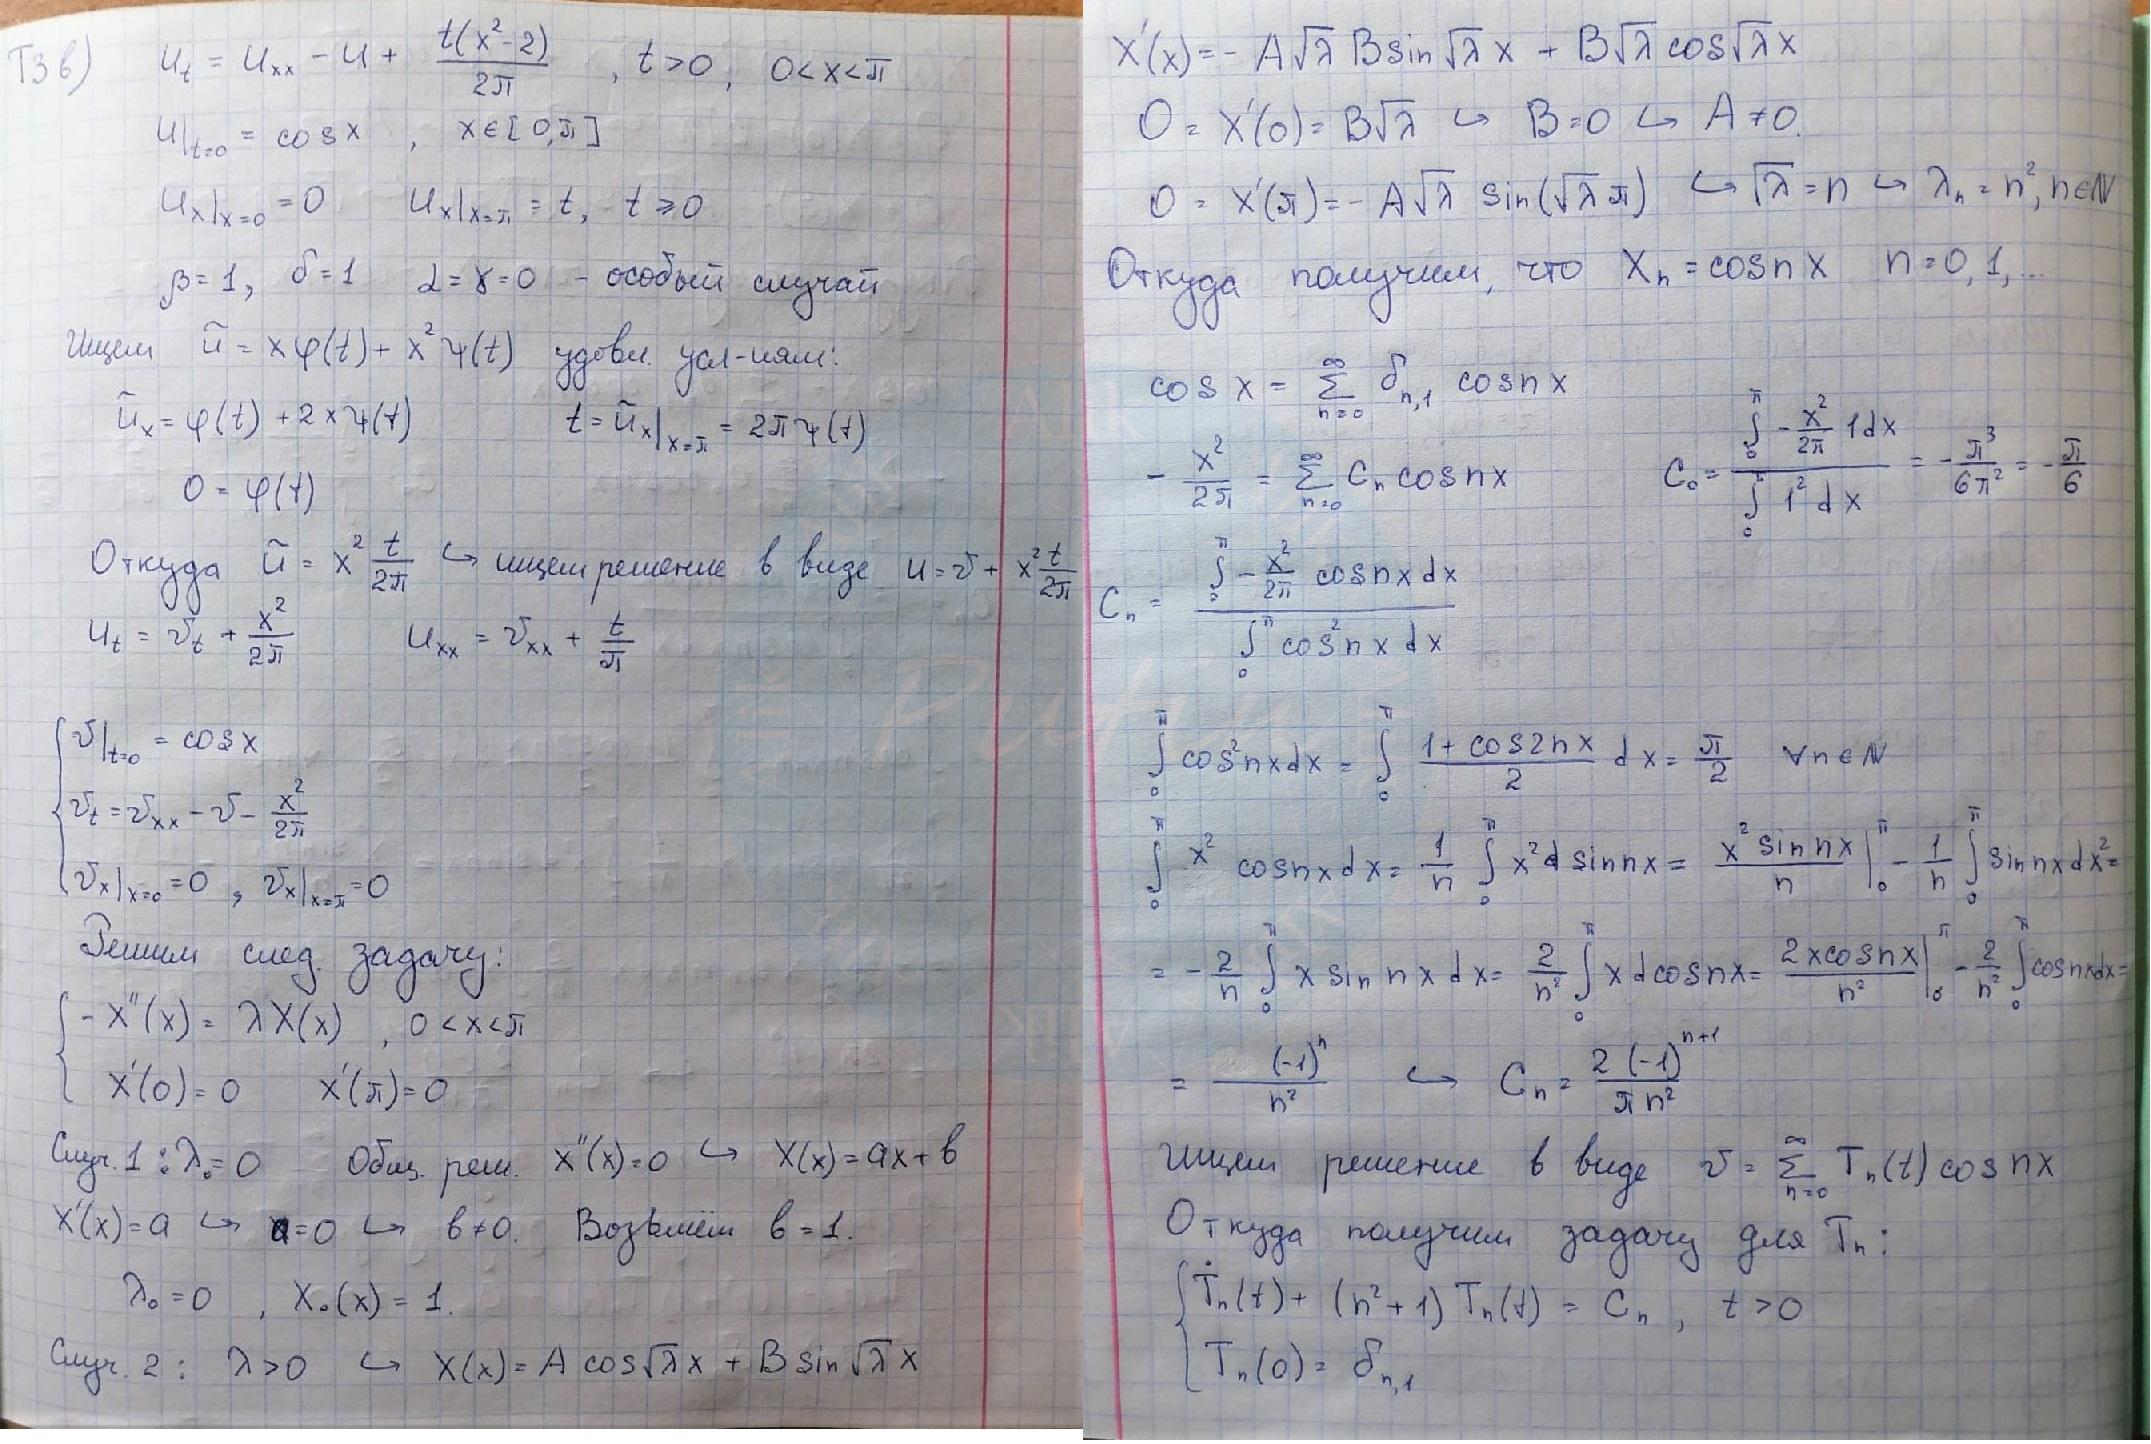 Т3 в) u_t = u_xx - u + t(x²-2)/2π , t>0, 0<x<π
u|_{t=0} = cos x , x∈[0,π]
u_x|_{x=0} = 0 u_x|_{x=π} = t, t⩾0
β=1, δ=1 α=γ=0 - особый случай
Ищем ũ = xφ(t) + x²ψ(t) удовл. усл-иям:
ũ_x = φ(t) + 2xψ(t) t = ũ_x|_{x=π} = 2πψ(t)
0 = φ(t)
Откуда ũ = x² t/2π ↪ ищем решение в виде u = v + x² t/2π
u_t = v_t + x²/2π u_xx = v_xx + t/π
v|_{t=0} = cos x
v_t = v_xx - v - x²/2π
v_x|_{x=0} = 0 , v_x|_{x=π} = 0
Решим след. задачу:
-X''(x) = λX(x) , 0<x<π
X'(0) = 0 X'(π) = 0
Случ. 1: λ₀=0 Общ. реш. X''(x)=0 ↪ X(x) = ax + b
X'(x) = a ↪ a=0 ↪ b≠0. Возьмём b=1.
λ₀ = 0 , X₀(x) = 1.
Случ. 2: λ>0 ↪ X(x) = A cos√λ x + B sin√λ x
X'(x) = - A√λ B sin√λ x + B√λ cos√λ x
0 = X'(0) = B√λ ↪ B=0 ↪ A≠0.
0 = X'(π) = - A√λ sin(√λ π) ↪ √λ = n ↪ λ_n = n², n∈N
Откуда получим, что X_n = cos nx n=0,1,...
cos x = ∑_{n=0}^{∞} δ_{n,1} cos nx
- x²/2π = ∑_{n=0}^{∞} C_n cos nx C₀ = ∫_0^π - x²/2π 1dx / ∫_0^π 1² dx = - π³/6π² = - π/6
C_n = ∫_0^π - x²/2π cos nx dx / ∫_0^π cos² nx dx
∫_0^π cos² nx dx = ∫_0^π (1 + cos 2nx)/2 dx = π/2 ∀n∈N
∫_0^π x² cos nx dx = 1/n ∫_0^π x² d sin nx = x² sin nx/n |_0^π - 1/n ∫_0^π sin nx dx² =
= - 2/n ∫_0^π x sin nx dx = 2/n² ∫_0^π x d cos nx = 2x cos nx/n² |_0^π - 2/n² ∫_0^π cos nx dx =
= (-1)^n/n² ↪ C_n = 2(-1)^{n+1}/πn²
Ищем решение в виде v = ∑_{n=0}^{∞} T_n(t) cos nx
Откуда получим задачу для T_n:
Ṫ_n(t) + (n²+1) T_n(t) = C_n , t>0
T_n(0) = δ_{n,1}